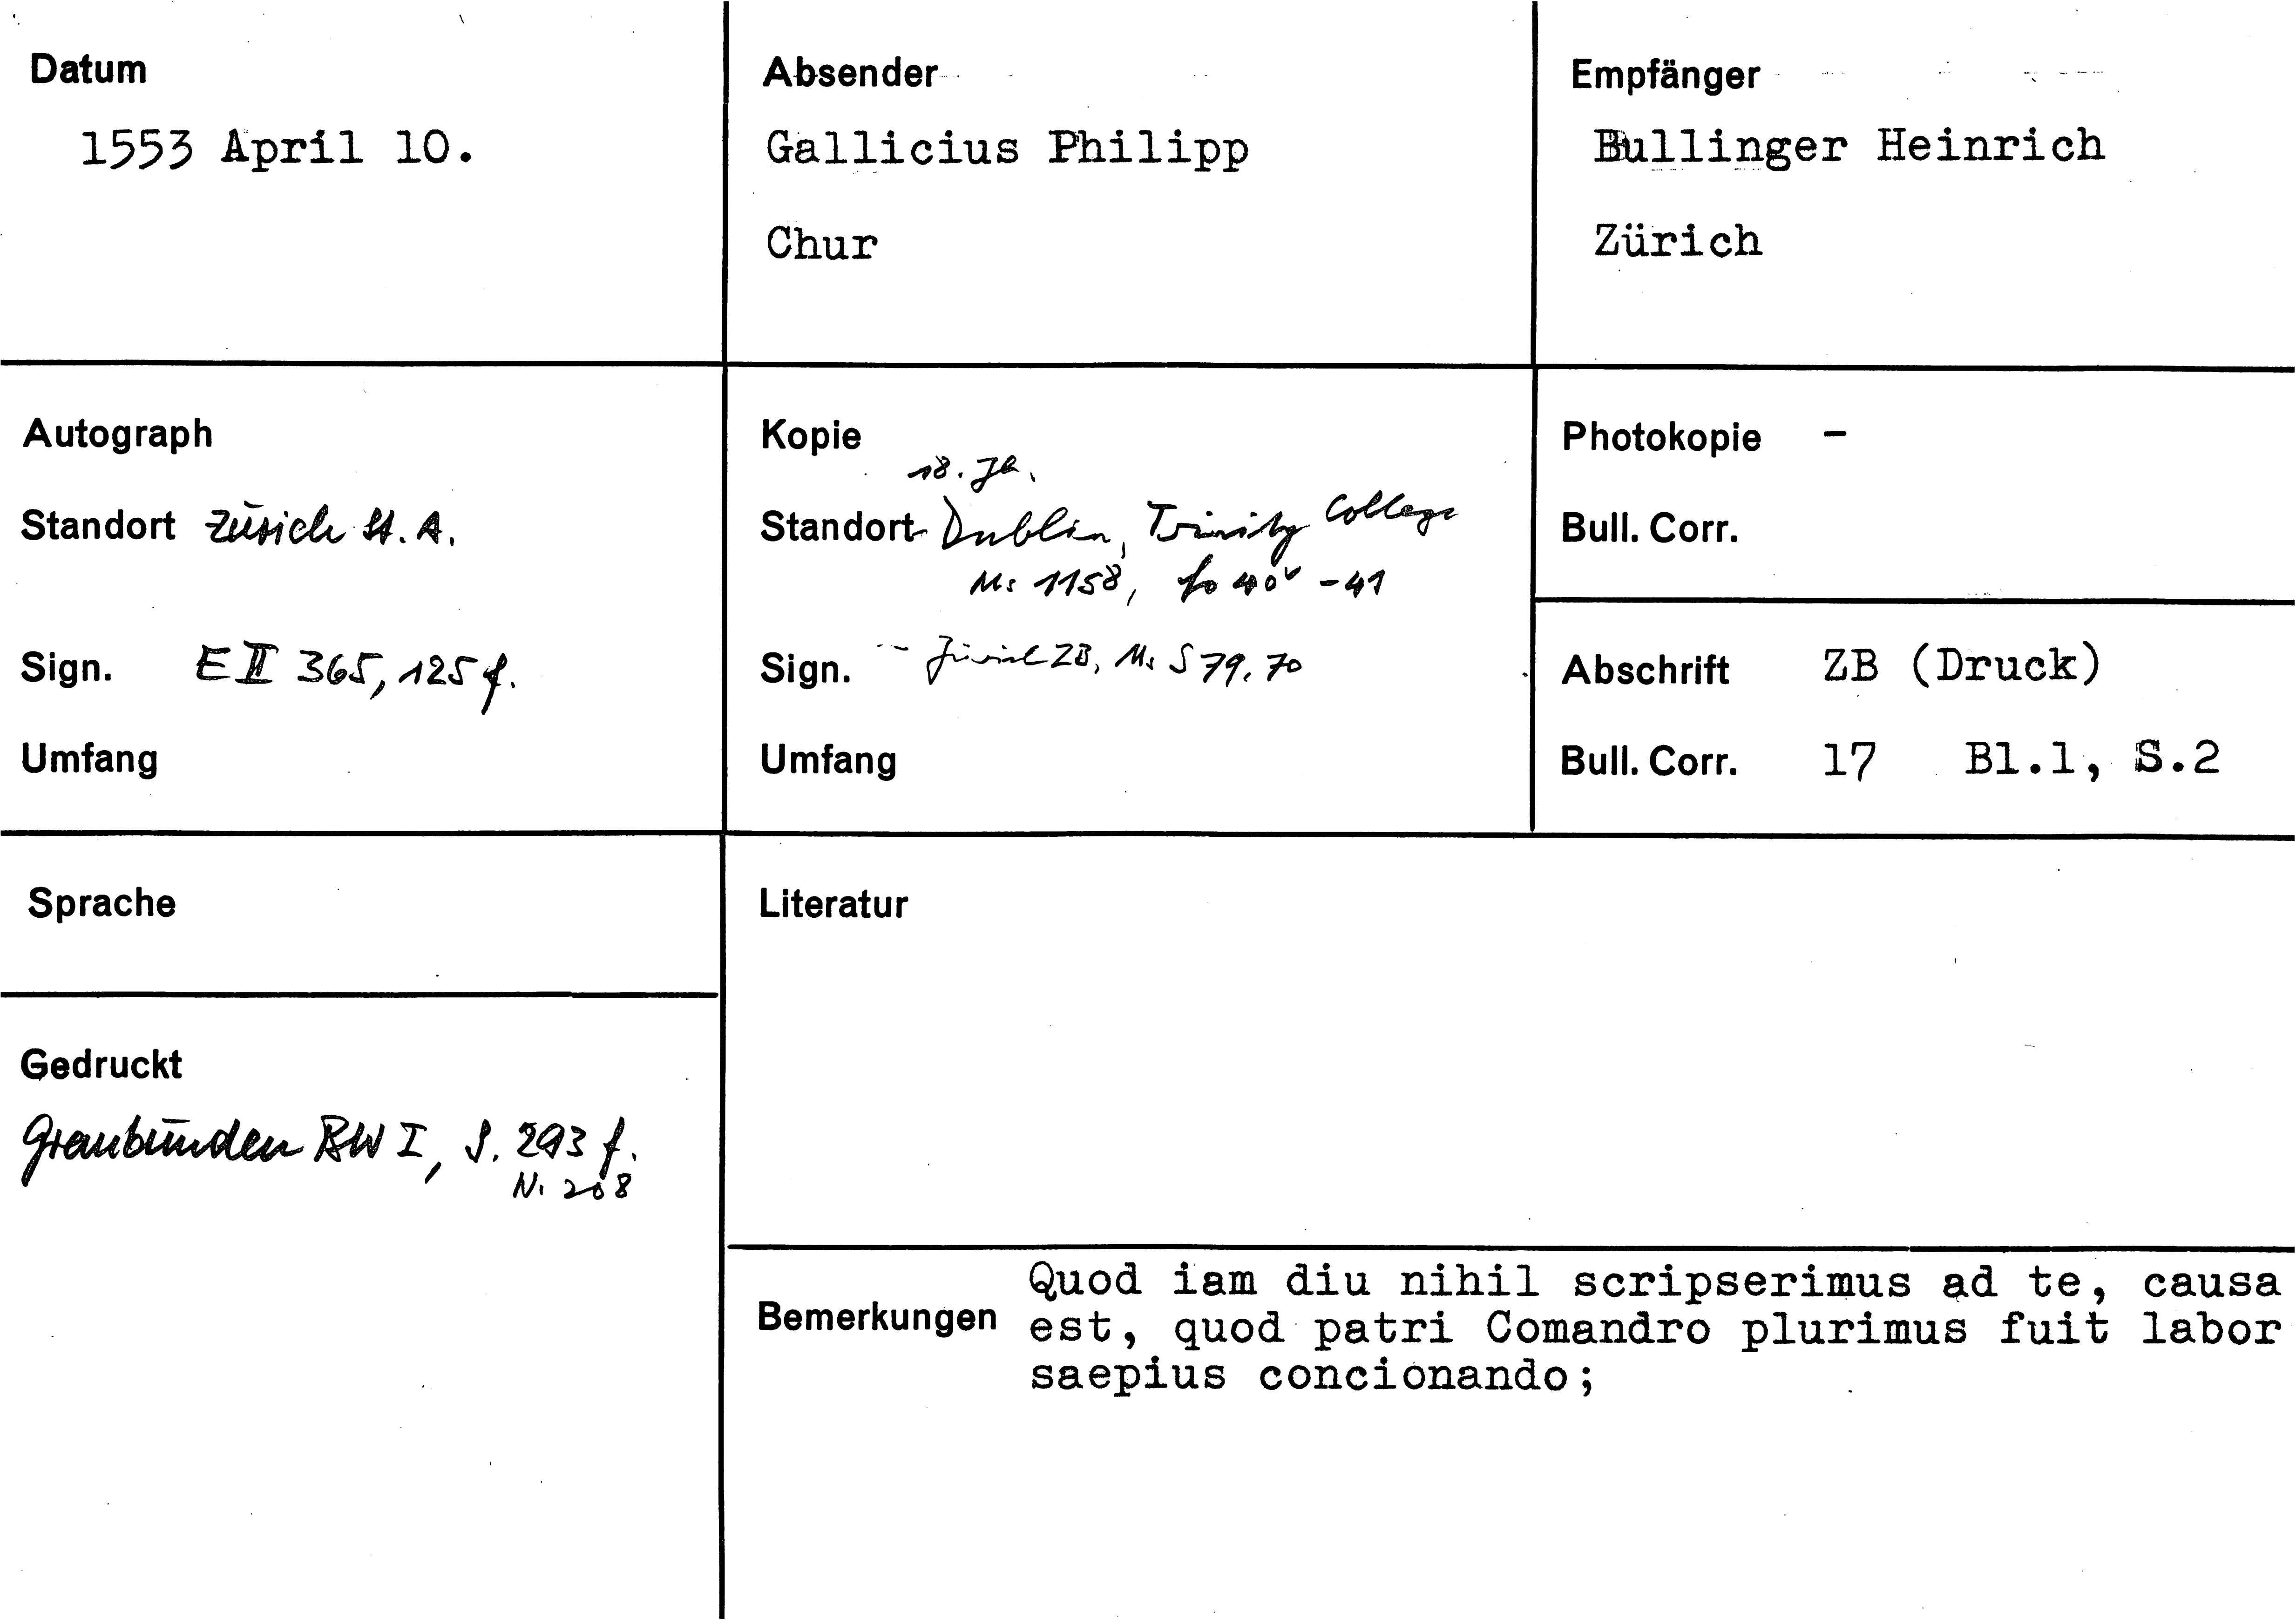 Datum
1553 April 10.
Absender
Gallicius Philipp
Chur
Empfänger
Bullinger Heinrich
Zürich
Autograph
Standort Zürich St. A.
Sign. E II 365, 125 f.
Umfang
Kopie
18. Jh.
Standort - Dublin, Trinity College
Ms 1158, fo 40v - 41
Sign. - Zürich ZB, Ms S 79, 70
Umfang
Photokopie -
Bull. Corr.
Abschrift ZB (Druck)
Bull. Corr. 17 Bl.1, S.2
Sprache
Gedruckt
Graubünden BW I, S. 293 f.
N. 208
Literatur
Bemerkungen
Quod iam diu nihil scripserimus ad te, causa
est, quod patri Comandro plurimus fuit labor
saepius concionando;